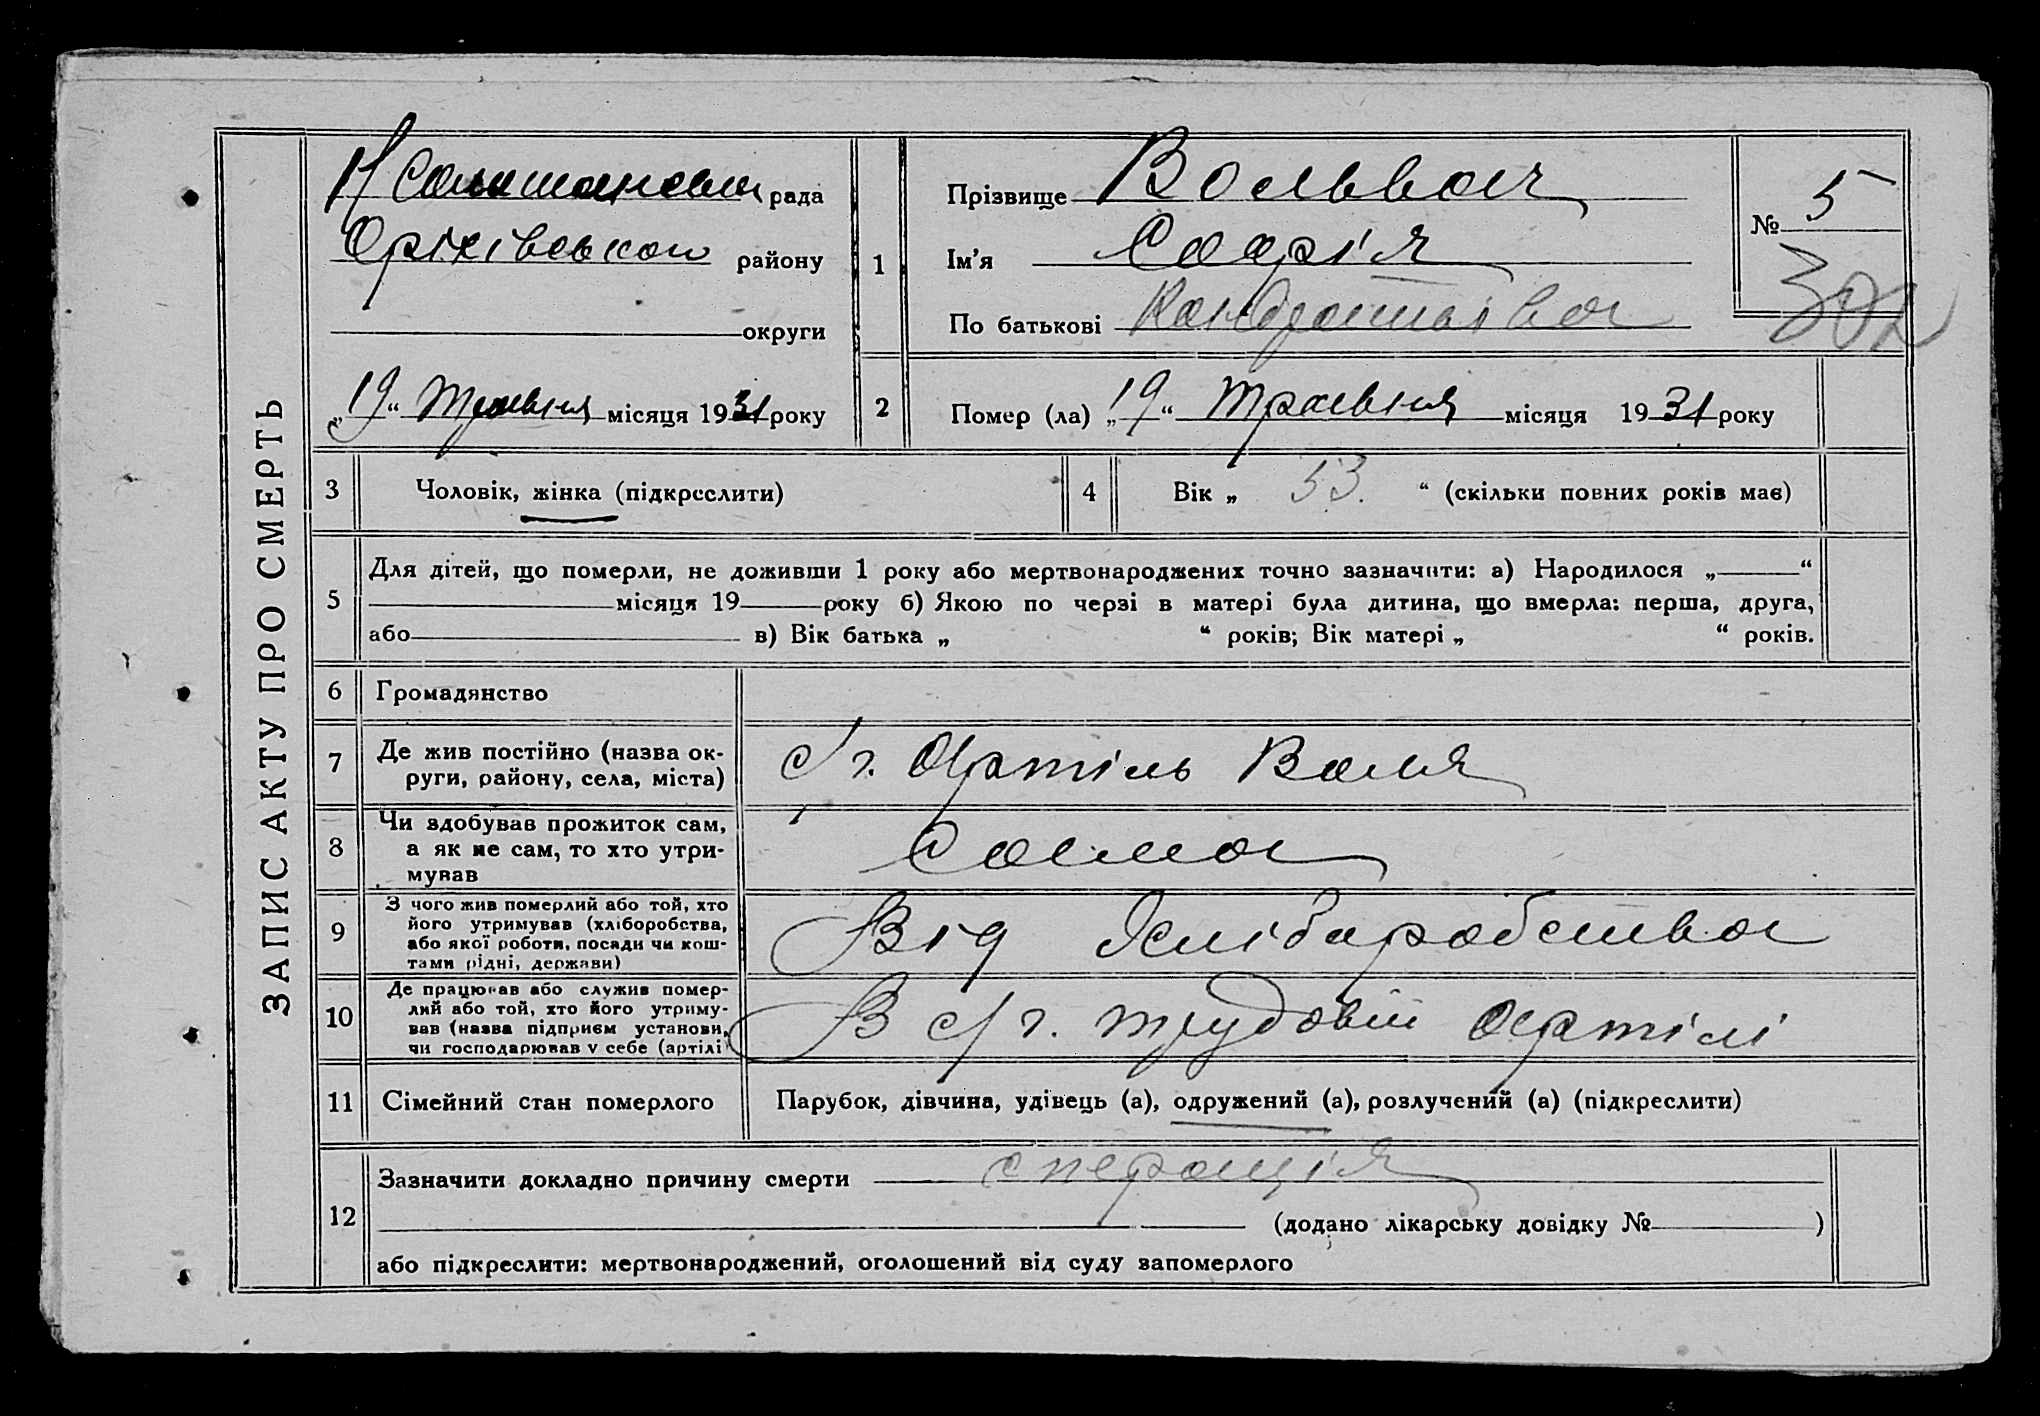 ЗАПИС АКТУ ПРО СМЕРТЬ
рада
Оріхівського району
округи
„19“ травня місяця 1931 року
1
Прізвище Вольвач
Ім’я Софія
По батькові Кондратієва
№ 5
302
2
Помер (ла) „19“ травня місяця 1931 року
3 Чоловік, жінка (підкреслити)
4 Вік „ 53. “ (скільки повних років має)
5 Для дітей, що померли, не доживши 1 року або мертвонароджених точно зазначити: а) Народилося „ “
місяця 19 року б) Якою по черзі в матері була дитина, що вмерла: перша, друга,
або в) Вік батька „ “ років; Вік матері „ “ років.
6 Громадянство
7 Де жив постійно (назва ок-
руги, району, села, міста)
С/г. Артіль Воля
8 Чи здобував прожиток сам,
а як не сам, то хто утри-
мував
Сама
9 З чого жив померлий або той, хто
його утримував (хліборобства,
або якої роботи, посади чи кош-
тами рідні, держави)
Від Хліборобства
10 Де працював або служив помер-
лий або той, хто його утриму-
вав (назва підприєм установи,
чи господарював у себе (артілі
В с/г. трудовій Артілі
11 Сімейний стан померлого
Парубок, дівчина, удівець (а), одружений (а), розлучений (а) (підкреслити)
12 Зазначити докладно причину смерти операція
(додано лікарську довідку № )
або підкреслити: мертвонароджений, оголошений від суду запомерлого